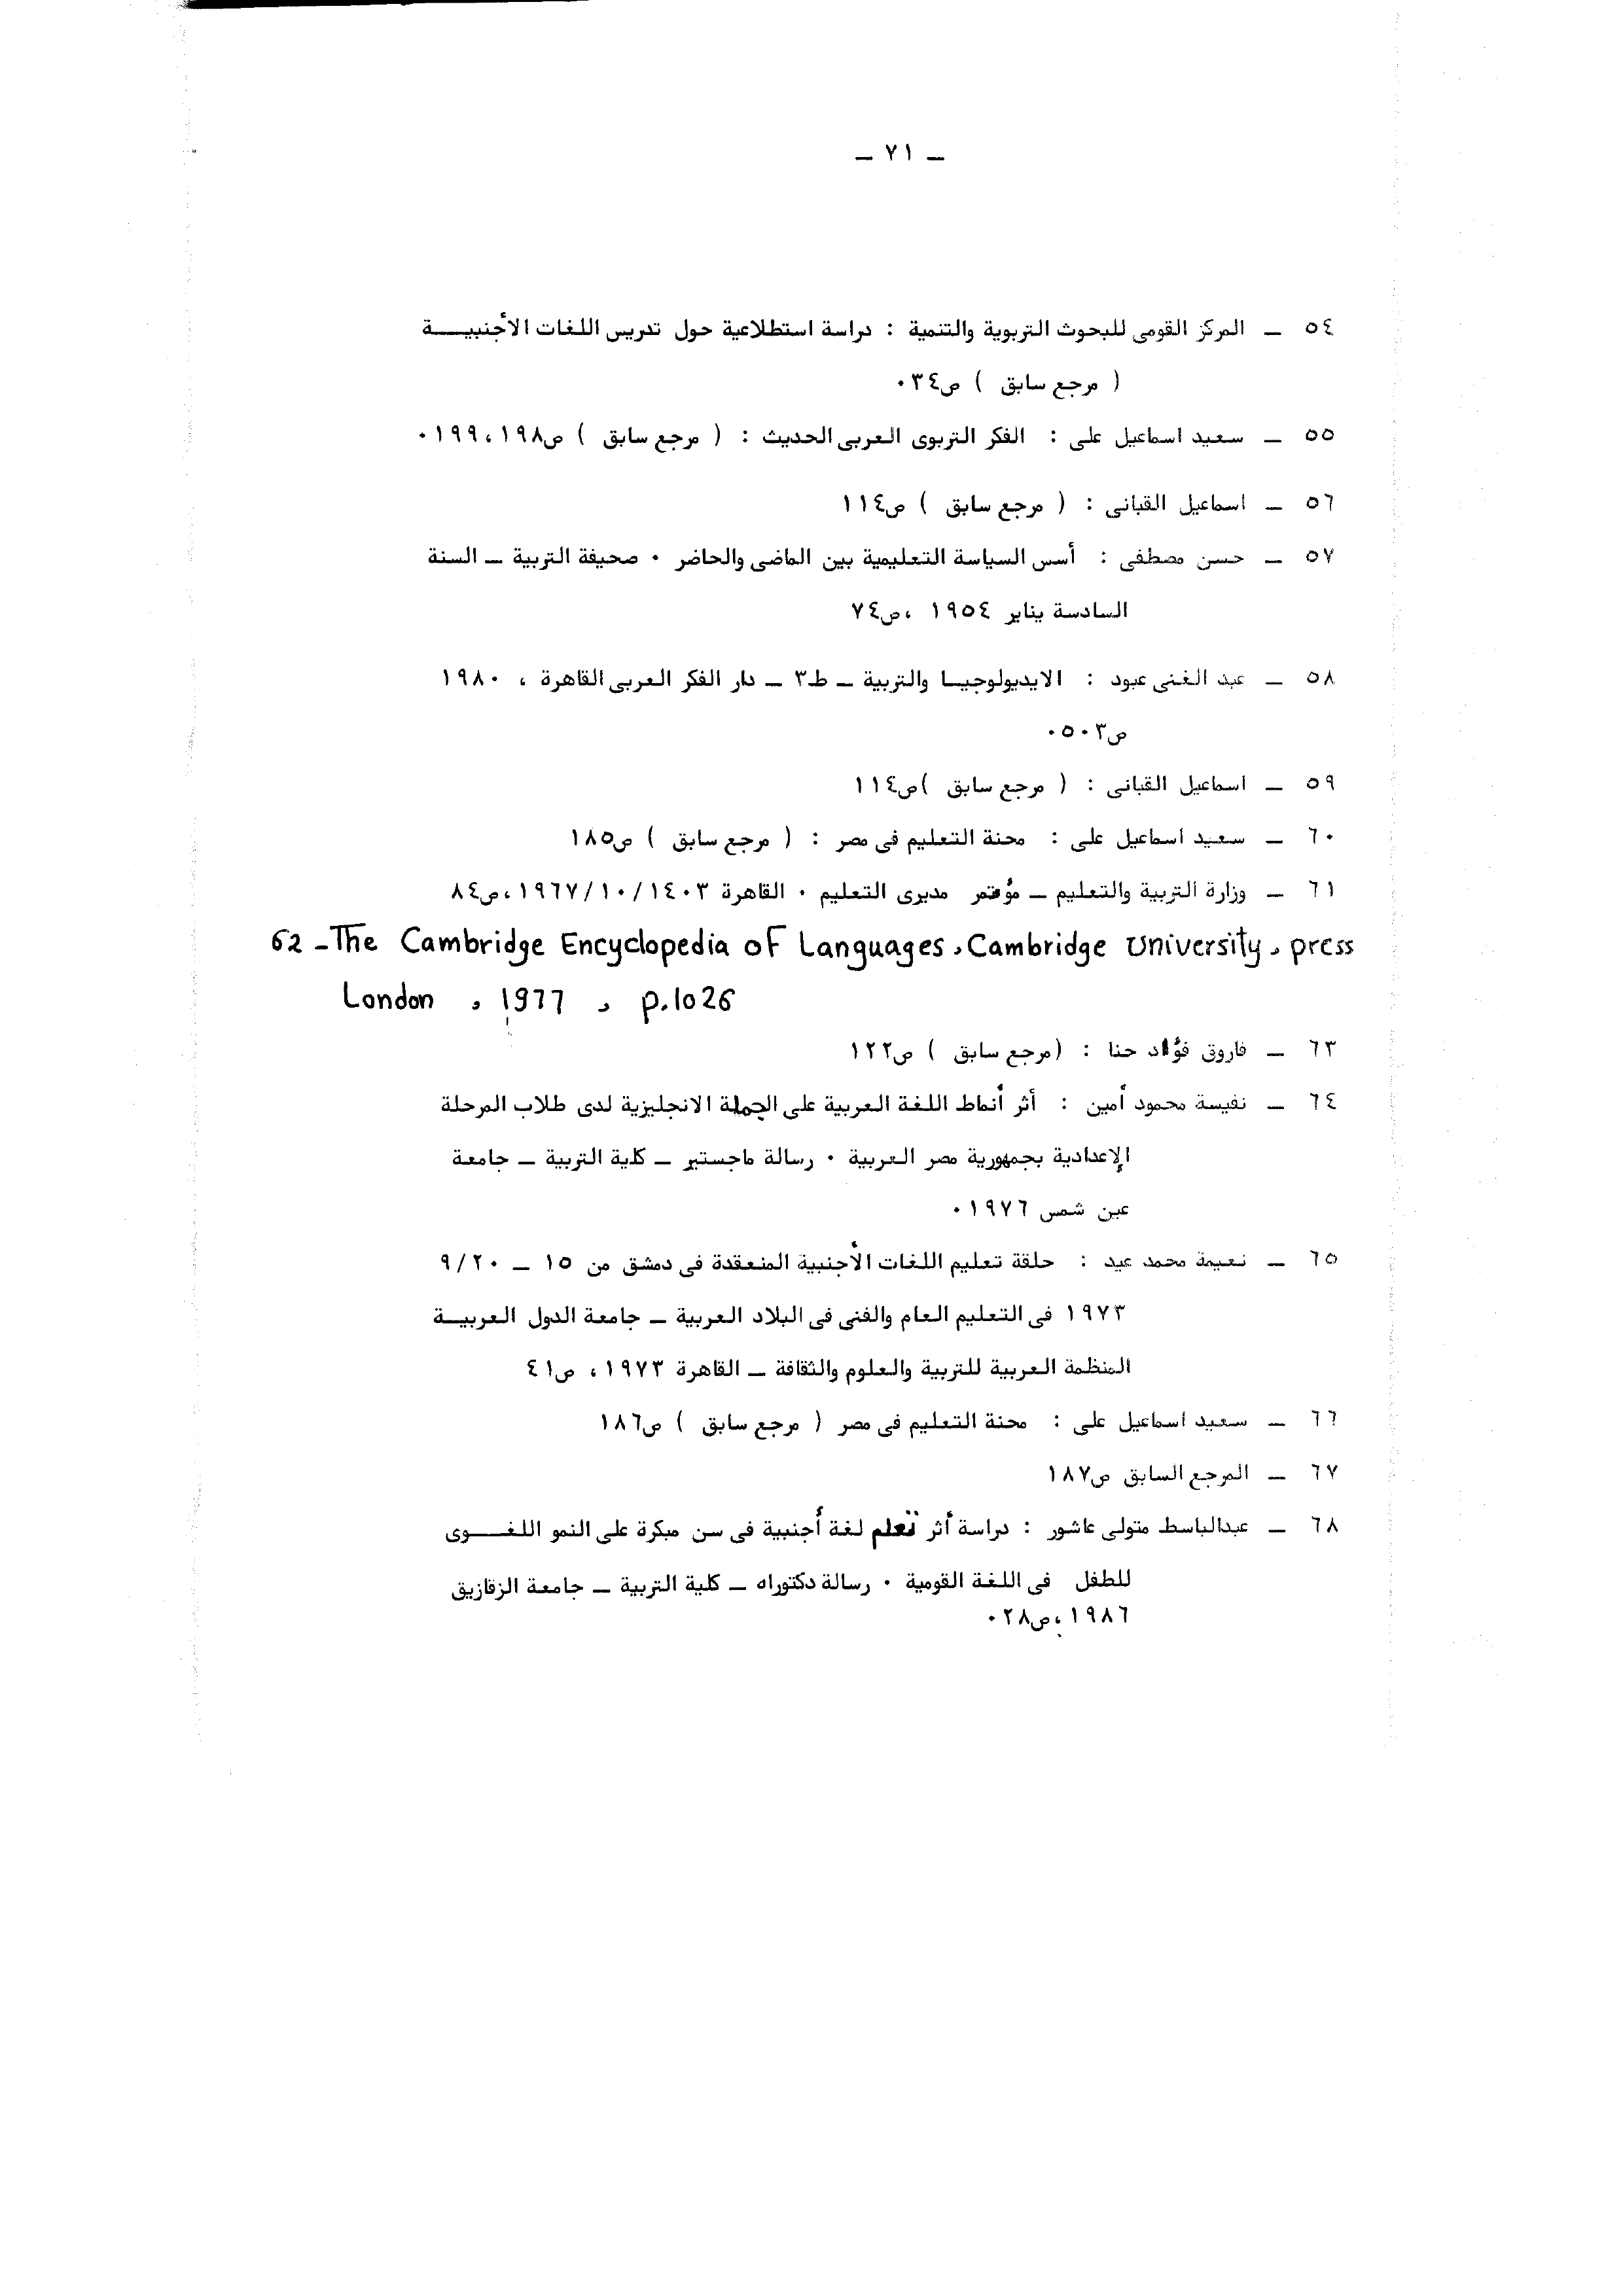 ـ ٧١ ـ
٥٤ ـ المركز القومى للبحوث التربوية والتنمية : دراسة استطلاعية حول تدريس اللغات الأجنبيـــة
( مرجع سابق ) ص٣٤٠
٥٥ ـ سعيد اسماعيل على : الفكر التربوى العربى الحديث : ( مرجع سابق ) ص١٩٨،١٩٩٠
٥٦ ـ اسماعيل القبانى : ( مرجع سابق ) ص١١٤
٥٧ ـ حسن مصطفى : أسس السياسة التعليمية بين الماضى والحاضر ٠ صحيفة التربية ـ السنة
السادسة يناير ١٩٥٤ ،ص٧٤
٥٨ ـ عبد الغنى عبود : الايديولوجيـا والتربية ـ ط٣ ـ دار الفكر العربى القاهرة ، ١٩٨٠
ص٥٠٣٠
٥٩ ـ اسماعيل القبانى : ( مرجع سابق )ص١١٤
٦٠ ـ سعيد اسماعيل على : محنة التعليم فى مصر : ( مرجع سابق ) ص١٨٥
٦١ ـ وزارة التربية والتعليم ـ مؤتمر مديرى التعليم ٠ القاهرة ١٤٠٣/١٠/١٩٦٧،ص٨٤
62 - The Cambridge Encyclopedia of Languages, Cambridge University, press
London , 1977 , p.1026
٦٣ ـ فاروق فؤاد حنا : (مرجع سابق ) ص١٢٢
٦٤ ـ نفيسة محمود أمين : أثر أنماط اللغة العربية على الجملة الانجليزية لدى طلاب المرحلة
الإعدادية بجمهورية مصر العربية ٠ رسالة ماجستير ـ كلية التربية ـ جامعة
عين شمس ١٩٧٦٠
٦٥ ـ نعيمة محمد عيد : حلقة تعليم اللغات الأجنبية المنعقدة فى دمشق من ١٥ ـ ٩/٢٠
١٩٧٣ فى التعليم العام والفنى فى البلاد العربية ـ جامعة الدول العربيـة
المنظمة العربية للتربية والعلوم والثقافة ـ القاهرة ١٩٧٣، ص٤١
٦٦ ـ سعيد اسماعيل على : محنة التعليم فى مصر ( مرجع سابق ) ص١٨٦
٦٧ ـ المرجع السابق ص١٨٧
٦٨ ـ عبدالباسط متولى عاشور : دراسة أثر تعلم لغة أجنبية فى سن مبكرة على النمو اللغـــوى
للطفل فى اللغة القومية ٠ رسالة دكتوراه ـ كلية التربية ـ جامعة الزقازيق
١٩٨٦،ص٢٨٠